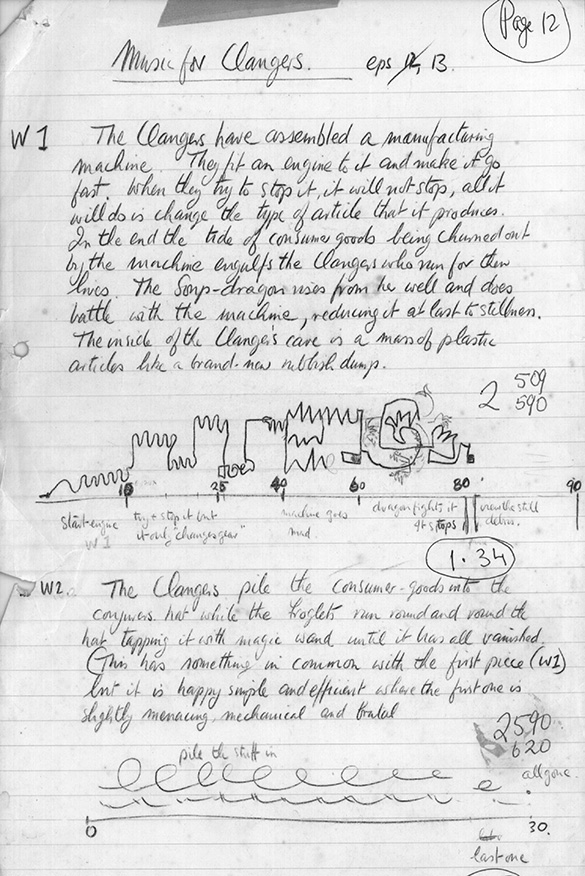 Page 12
Music for Clangers. eps 12, 13.
W1 The Clangers have assembled a manufacturing
machine. They fit an engine to it and make it go
fast. When they try to stop it, it will not stop, all it
will do is change the type of article that it produces.
In the end the tide of consumer goods being churned out
by the machine engulfs the Clangers who run for their
lives. The Soup-dragon rises from he well and does
battle with the machine, reducing it at last to stillness.
The inside of the Clangers cave is a mass of plastic
articles like a brand-new rubbish dump.
2 509
590
10 25 40 60 80 90
start engine try & stop it but machine goes dragon fights it view the still
W1 it only "changes gear" mad it stops debris.
1.34
W2. The Clangers pile the consumer-goods into the
conjurers hat while the froglets run round and round the
hat tapping it with magic wand until it has all vanished.
(This has something in common with the first piece (W1)
but it is happy simple and efficient where the first one is
slightly menacing mechanical and brutal
2590
620
pile the stuff in
all gone
0 30.
last one